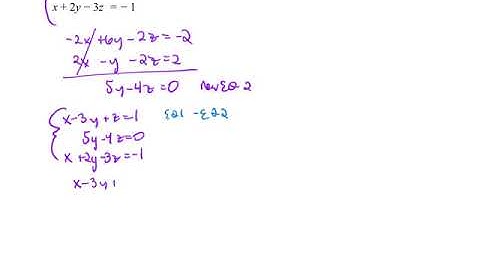 x + 2y − 3z = − 1
-2x +6y -2z = -2
2x -y -2z = 2
5y-4z=0 new EQ 2
x-3y+z=1 EQ1 -EQ2
5y-4z=0
x+2y-3z=-1
x-3y+